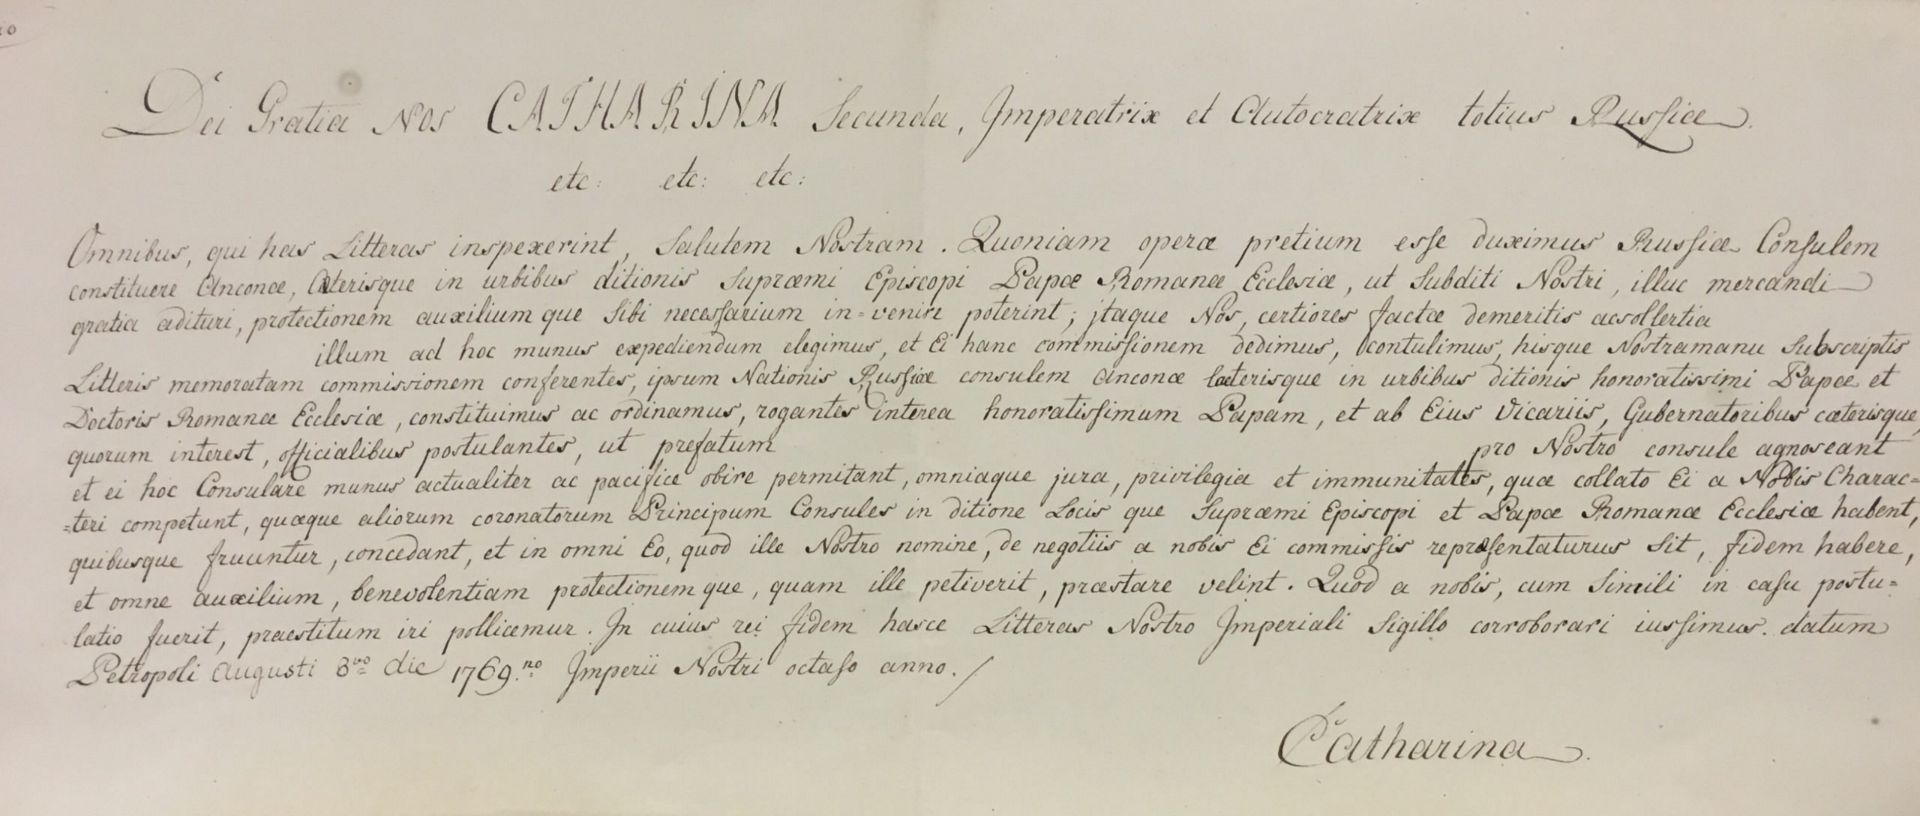 Dei Gratia Nos CATHARINA Secunda, Imperatrix et Autocratrix totius Russiæ.
etc: etc: etc:
Omnibus, qui has Litteras inspexerint, Salutem Nostram. Quoniam operæ pretium esse duximus Russiæ Consulem
constituere Anconæ, Cæterisque in urbibus ditionis Supræmi Episcopi Papæ Romanæ Ecclesiæ, ut Subditi Nostri, illuc mercandi
gratia adituri, protectionem auxiliumque Sibi necessarium in=venire poterint; jtaque Nos, certiores factæ demeritis acsollertia
illum ad hoc munus expediendum elegimus, et Ei hanc commissionem dedimus, contulimus, hisque Nostramanu Subscriptis
Litteris memoratam commissionem conferentes, ipsum Nationis Russiæ consulem Anconæ Cæterisque in urbibus ditionis honoratissimi Papæ et
Doctoris Romanæ Ecclesiæ, constituimus ac ordinamus, rogantes interea honoratissimum Papam, et ab Eius Vicariis, Gubernatoribus cæterisque,
quorum interest, officialibus postulantes, ut prefatum pro Nostro consule agnoscant
et ei hoc Consulare munus actualiter ac pacifice obire permitant, omniaque jura, privilegia et immunitates, quæ collato Ei a Nobis Charac=
=teri competunt, quæque aliorum coronatorum Principum Consules in ditione Locis que Supræmi Episcopi et Papæ Romanæ Ecclesiæ habent,
quibusque fruuntur, concedant, et in omni Eo, quod ille Nostro nomine, de negotiis a nobis Ei commissis repræsentaturus Sit, fidem habere,
et omne auxilium, benevolentiam protectionemque, quam ille petiverit, præstare velint. Quod a nobis, cum Simili in casu postu=
latio fuerit, praestitum iri pollicemur. In cuius rei fidem hasce Litteras Nostro Imperiali Sigillo corroborari iussimus. datum
Petropoli Augusti 8vo die 1769.no Imperii Nostri octavo anno./
Catharina.